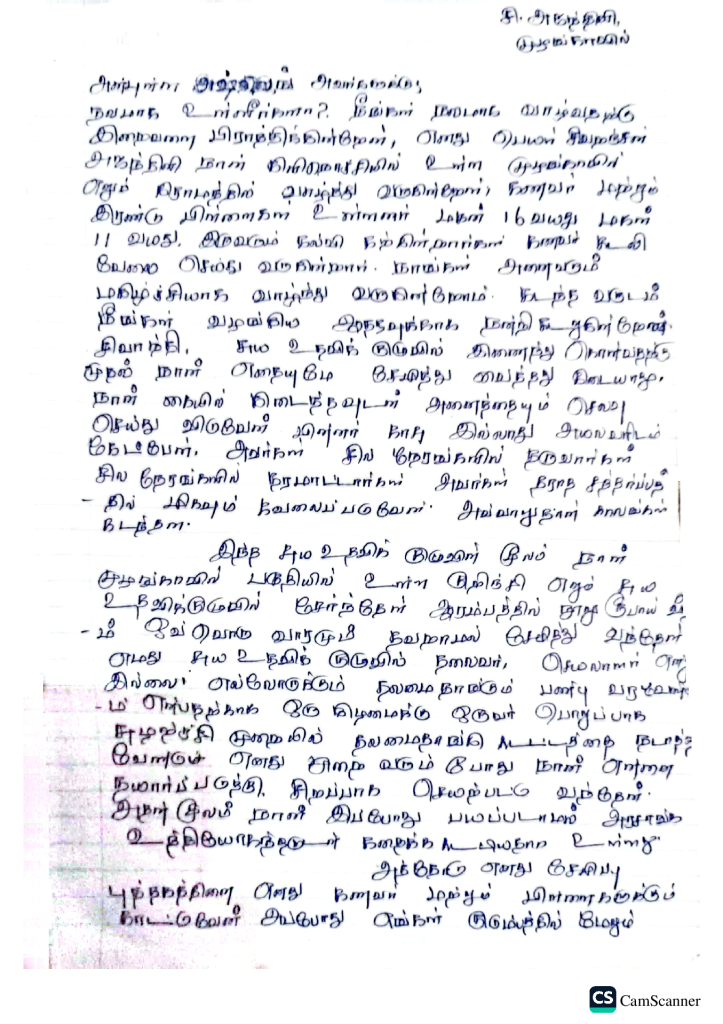 சி. அகந்தினி,
முழங்காவில்
அன்புள்ள அவர்களுக்கு;
நலமாக உள்ளீர்களா? நீங்கள் நலமாக வாழ்வதற்கு
இறைவனை பிராத்திக்கின்றேன், எனது பெயர்
அகந்தினி நான் கிளிநொச்சியில் உள்ள முழங்காவில்
எனும் கிராமத்தில் வாழ்ந்து வருகின்றேன், கணவர் மற்றும்
இரண்டு பிள்ளைகள் உள்ளனர் மகன் 16 வயது மகள்
11 வயது. இருவரும் கல்வி கற்கின்றார்கள் கணவர் கூலி
வேலை செய்து வருகின்றார். நாங்கள் அனைவரும்
மகிழ்ச்சியாக வாழ்ந்து வருகின்றோம். கடந்த வருடம்
நீங்கள் வழங்கிய ஆதரவுக்காக நன்றி கூறுகின்றேன்.
சுய உதவிக் குழுவில் இணைந்து கொள்வதற்கு
முதல் நான் எதையுமே சேமித்து வைத்தது கிடையாது.
நான் கையில் கிடைத்தவுடன் அனைத்தையும் செலவு
செய்து விடுவேன் பின்னர் காசு இல்லாது அயலவரிடம்
கேட்பேன். அவர்கள் சில நேரங்களில் தருவார்கள்
சில நேரங்களில் தரமாட்டார்கள் அவர்கள் தராத சந்தர்ப்பத்
- தில் மிகவும் கவலைப்படுவேன். அவ்வாறுதான் காலங்கள்
கடந்தன.
இந்த சுய உதவிக் குழுவின் மூலம் நான்
முழங்காவில் பகுதியில் உள்ள குறிஞ்சி எனும் சுய
உதவிக்குழுவில் சேர்ந்தேன் ஆரம்பத்தில் நூறு ரூபாய் வீ
- ம் ஒவ்வொரு வாரமும் தவறாமல் சேமித்து வந்தேன்
எமது சுய உதவிக் குழுவில் தலைவர், செயலாளர் என
இல்லை; எல்லோருக்கும் தலைமைதாங்கும் பண்பு வரவேண்
- ம் என்பதற்காக ஒரு கிழமைக்கு ஒருவர் பொறுப்பாக
சுழற்சி முறையில் தலைமைதாங்கி கூட்டத்தை நடாத்த
வேண்டும் எனது முறை வரும் போது நான் என்னை
தயார்ப்படுத்தி, சிறப்பாக செயற்பட்டு வந்தேன்.
அதன் மூலம் நான் இப்போது பயப்படாமல் அரசாங்க
உத்தியோகத்தருடன் கதைக்க கூடியதாக உள்ளது.
அத்தோடு எனது சேமிப்பு
புத்தகத்தினை எனது கணவர் மற்றும் பிள்ளைகளுக்கும்
காட்டுவேன் அப்போது எங்கள் குடும்பத்தில் மேலும்
CS CamScanner